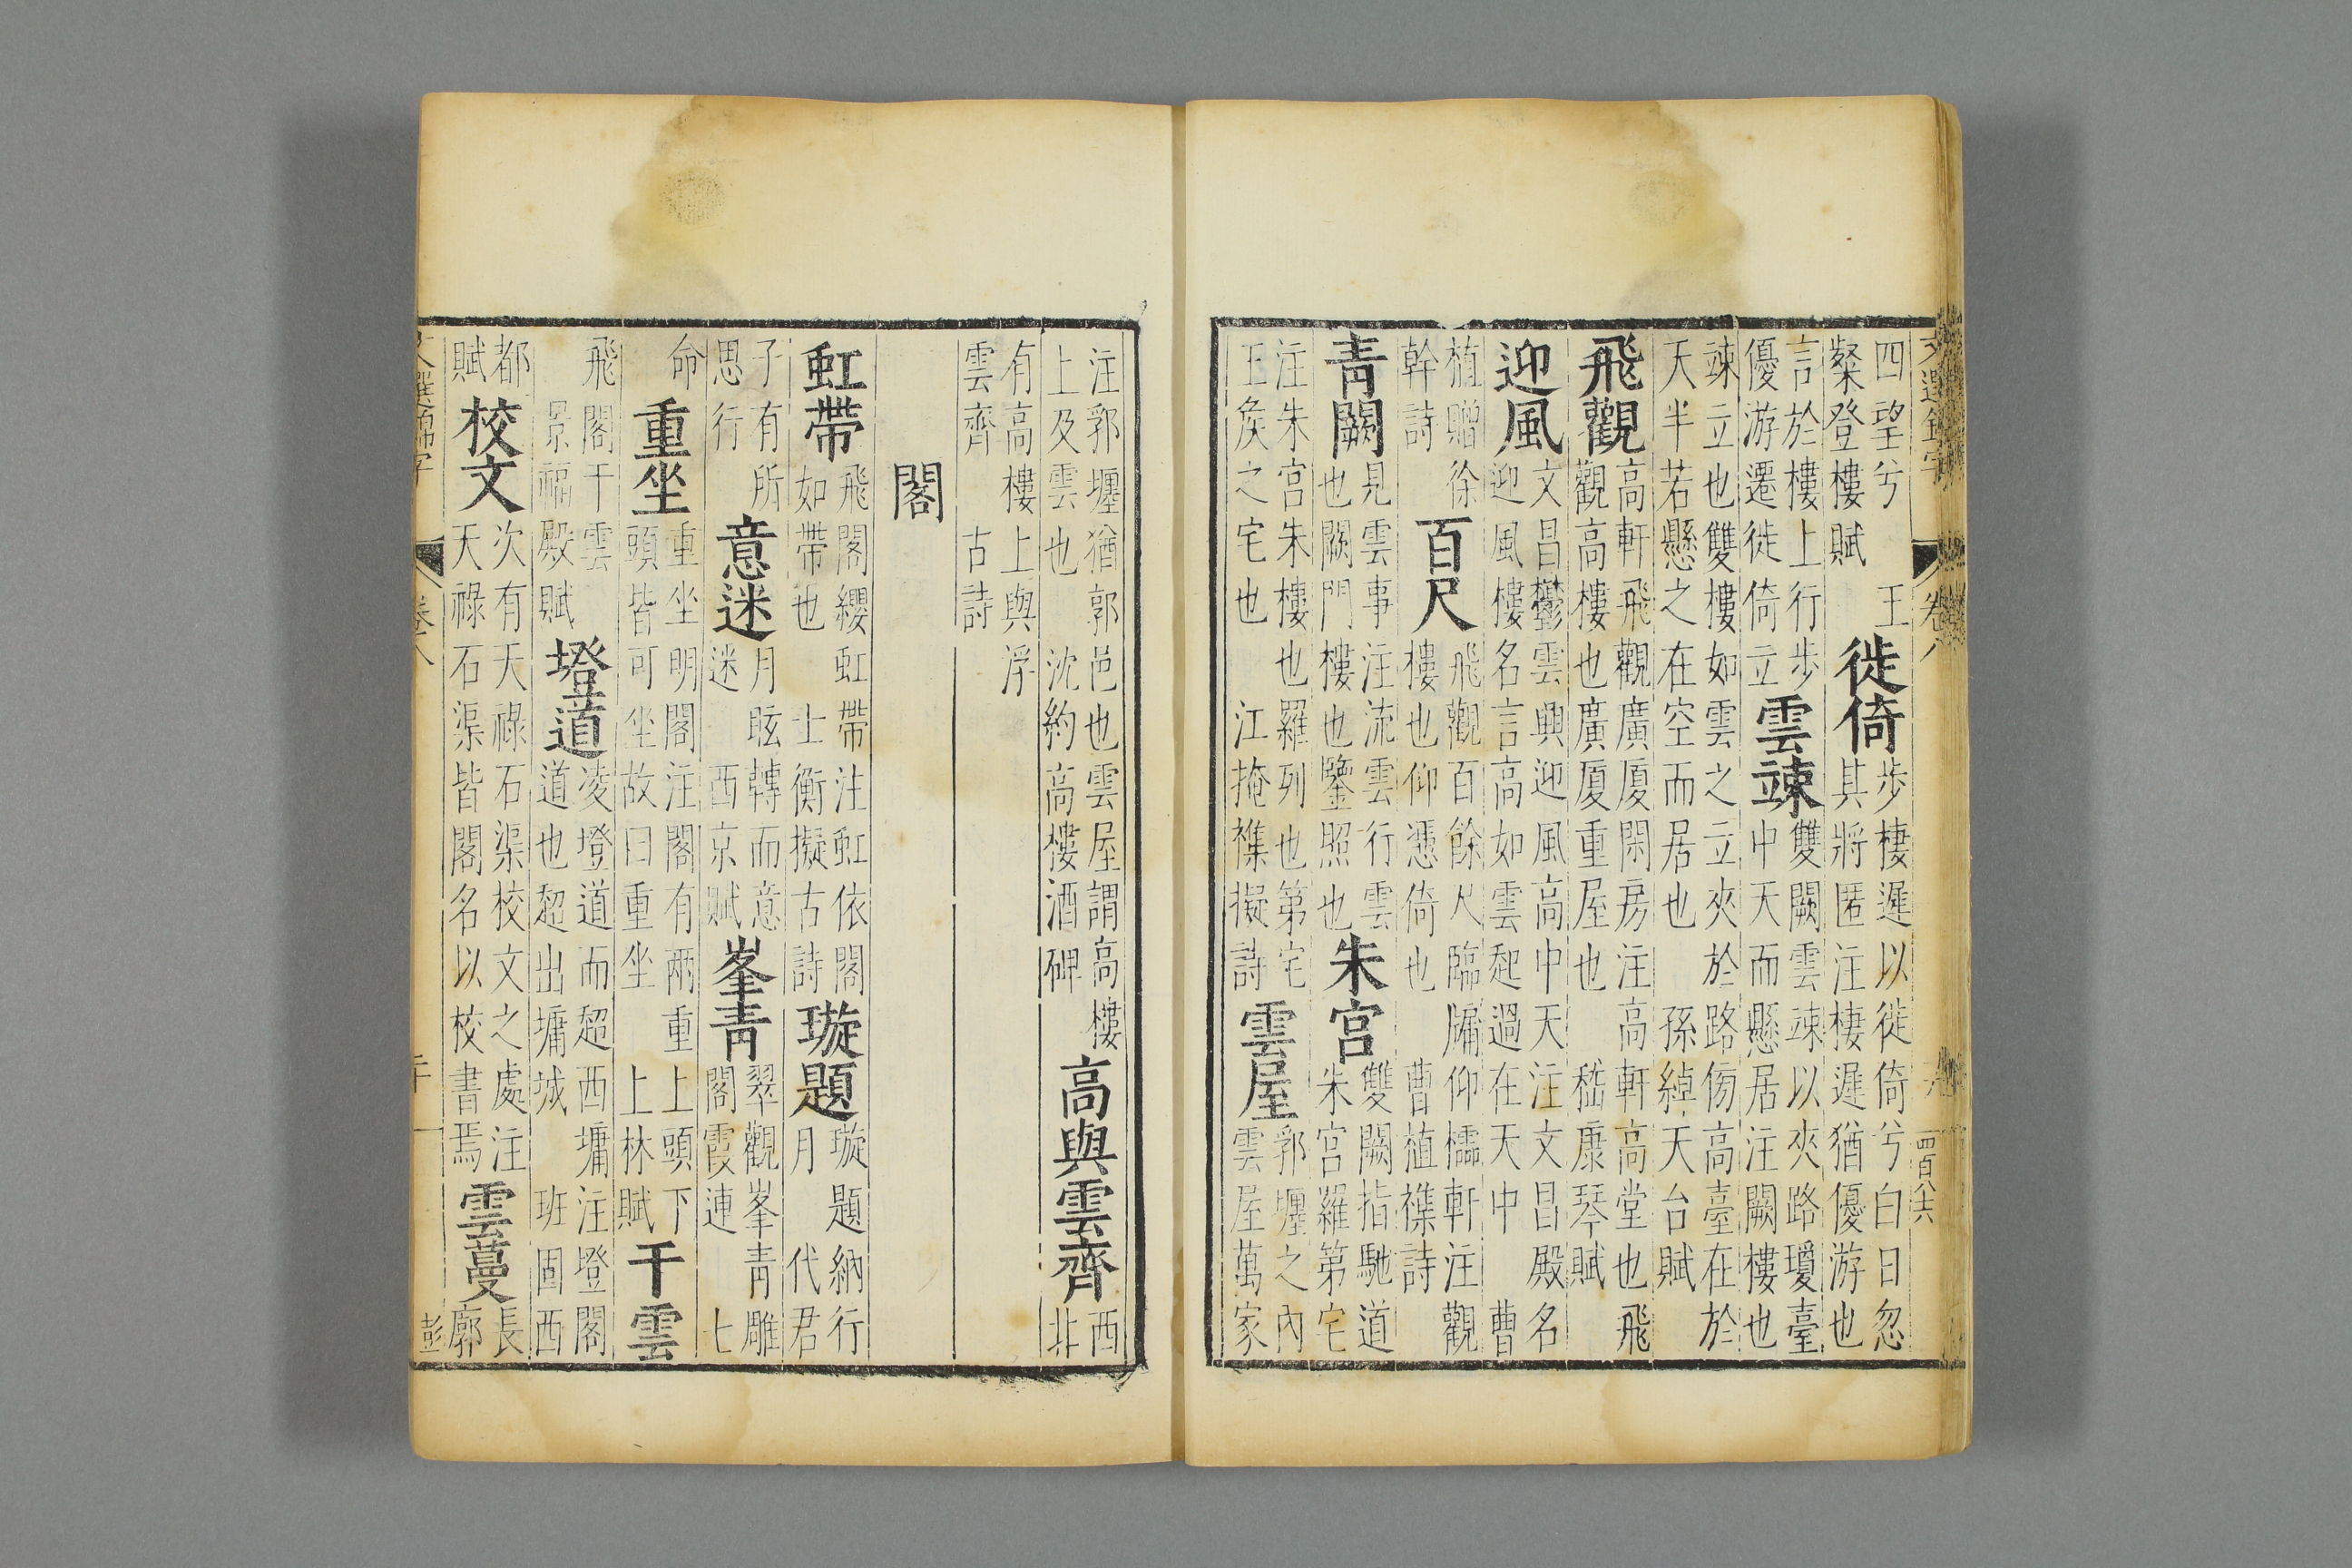 文選錦字 卷八 四百八六
四望兮 王粲登樓賦 徙倚 步棲遲以徙倚兮白日忽其將匿注棲遲猶優游也
言於樓上行步優游遷徙倚立 雲竦 雙闕雲竦以夾路瓊臺中天而懸居注闕樓也
竦立也雙樓如雲之立夾於路傍高臺在於天半若懸之在空而居也 孫綽天台賦
飛觀 高軒飛觀廣厦閑房注高軒高堂也飛觀高樓也廣厦重屋也 嵇康琴賦
迎風 文昌鬱雲興迎風高中天注文昌殿名迎風樓名言高如雲起過在天中 曹
植贈徐幹詩 百尺 飛觀百餘尺臨牖仰櫺軒注觀樓也仰憑倚也 曹植襍詩
青闕 見雲事注流雲行雲也闕門樓也鑒照也 朱宮 雙闕指馳道朱宮羅第宅
注朱宮朱樓也羅列也第宅王矦之宅也 江掩襍擬詩 雲屋 郭壥之內雲屋萬家
注郭壥猶郭邑也雲屋謂高樓上及雲也 沈約高樓酒碑 高與雲齊 西北
有高樓上與浮雲齊 古詩
閣
虹帶 飛閣纓虹帶注虹依閣如帶也 士衡擬古詩 璇題 璇題納行月 代君
子有所思行 意迷 月眩轉而意迷 西京賦 峯青 翠觀峯青雕閣霞連 七
命 重坐 重坐明閣注閣有兩重上頭下頭皆可坐故曰重坐 上林賦 干雲
飛閣干雲 景福殿賦 墱道 凌墱道而超西墉注墱閣道也超出墉城 班固西
都賦 校文 次有天祿石渠校文之處注天祿石渠皆閣名以校書焉 雲蔓 長廓
文選錦字 卷八 二十 彭